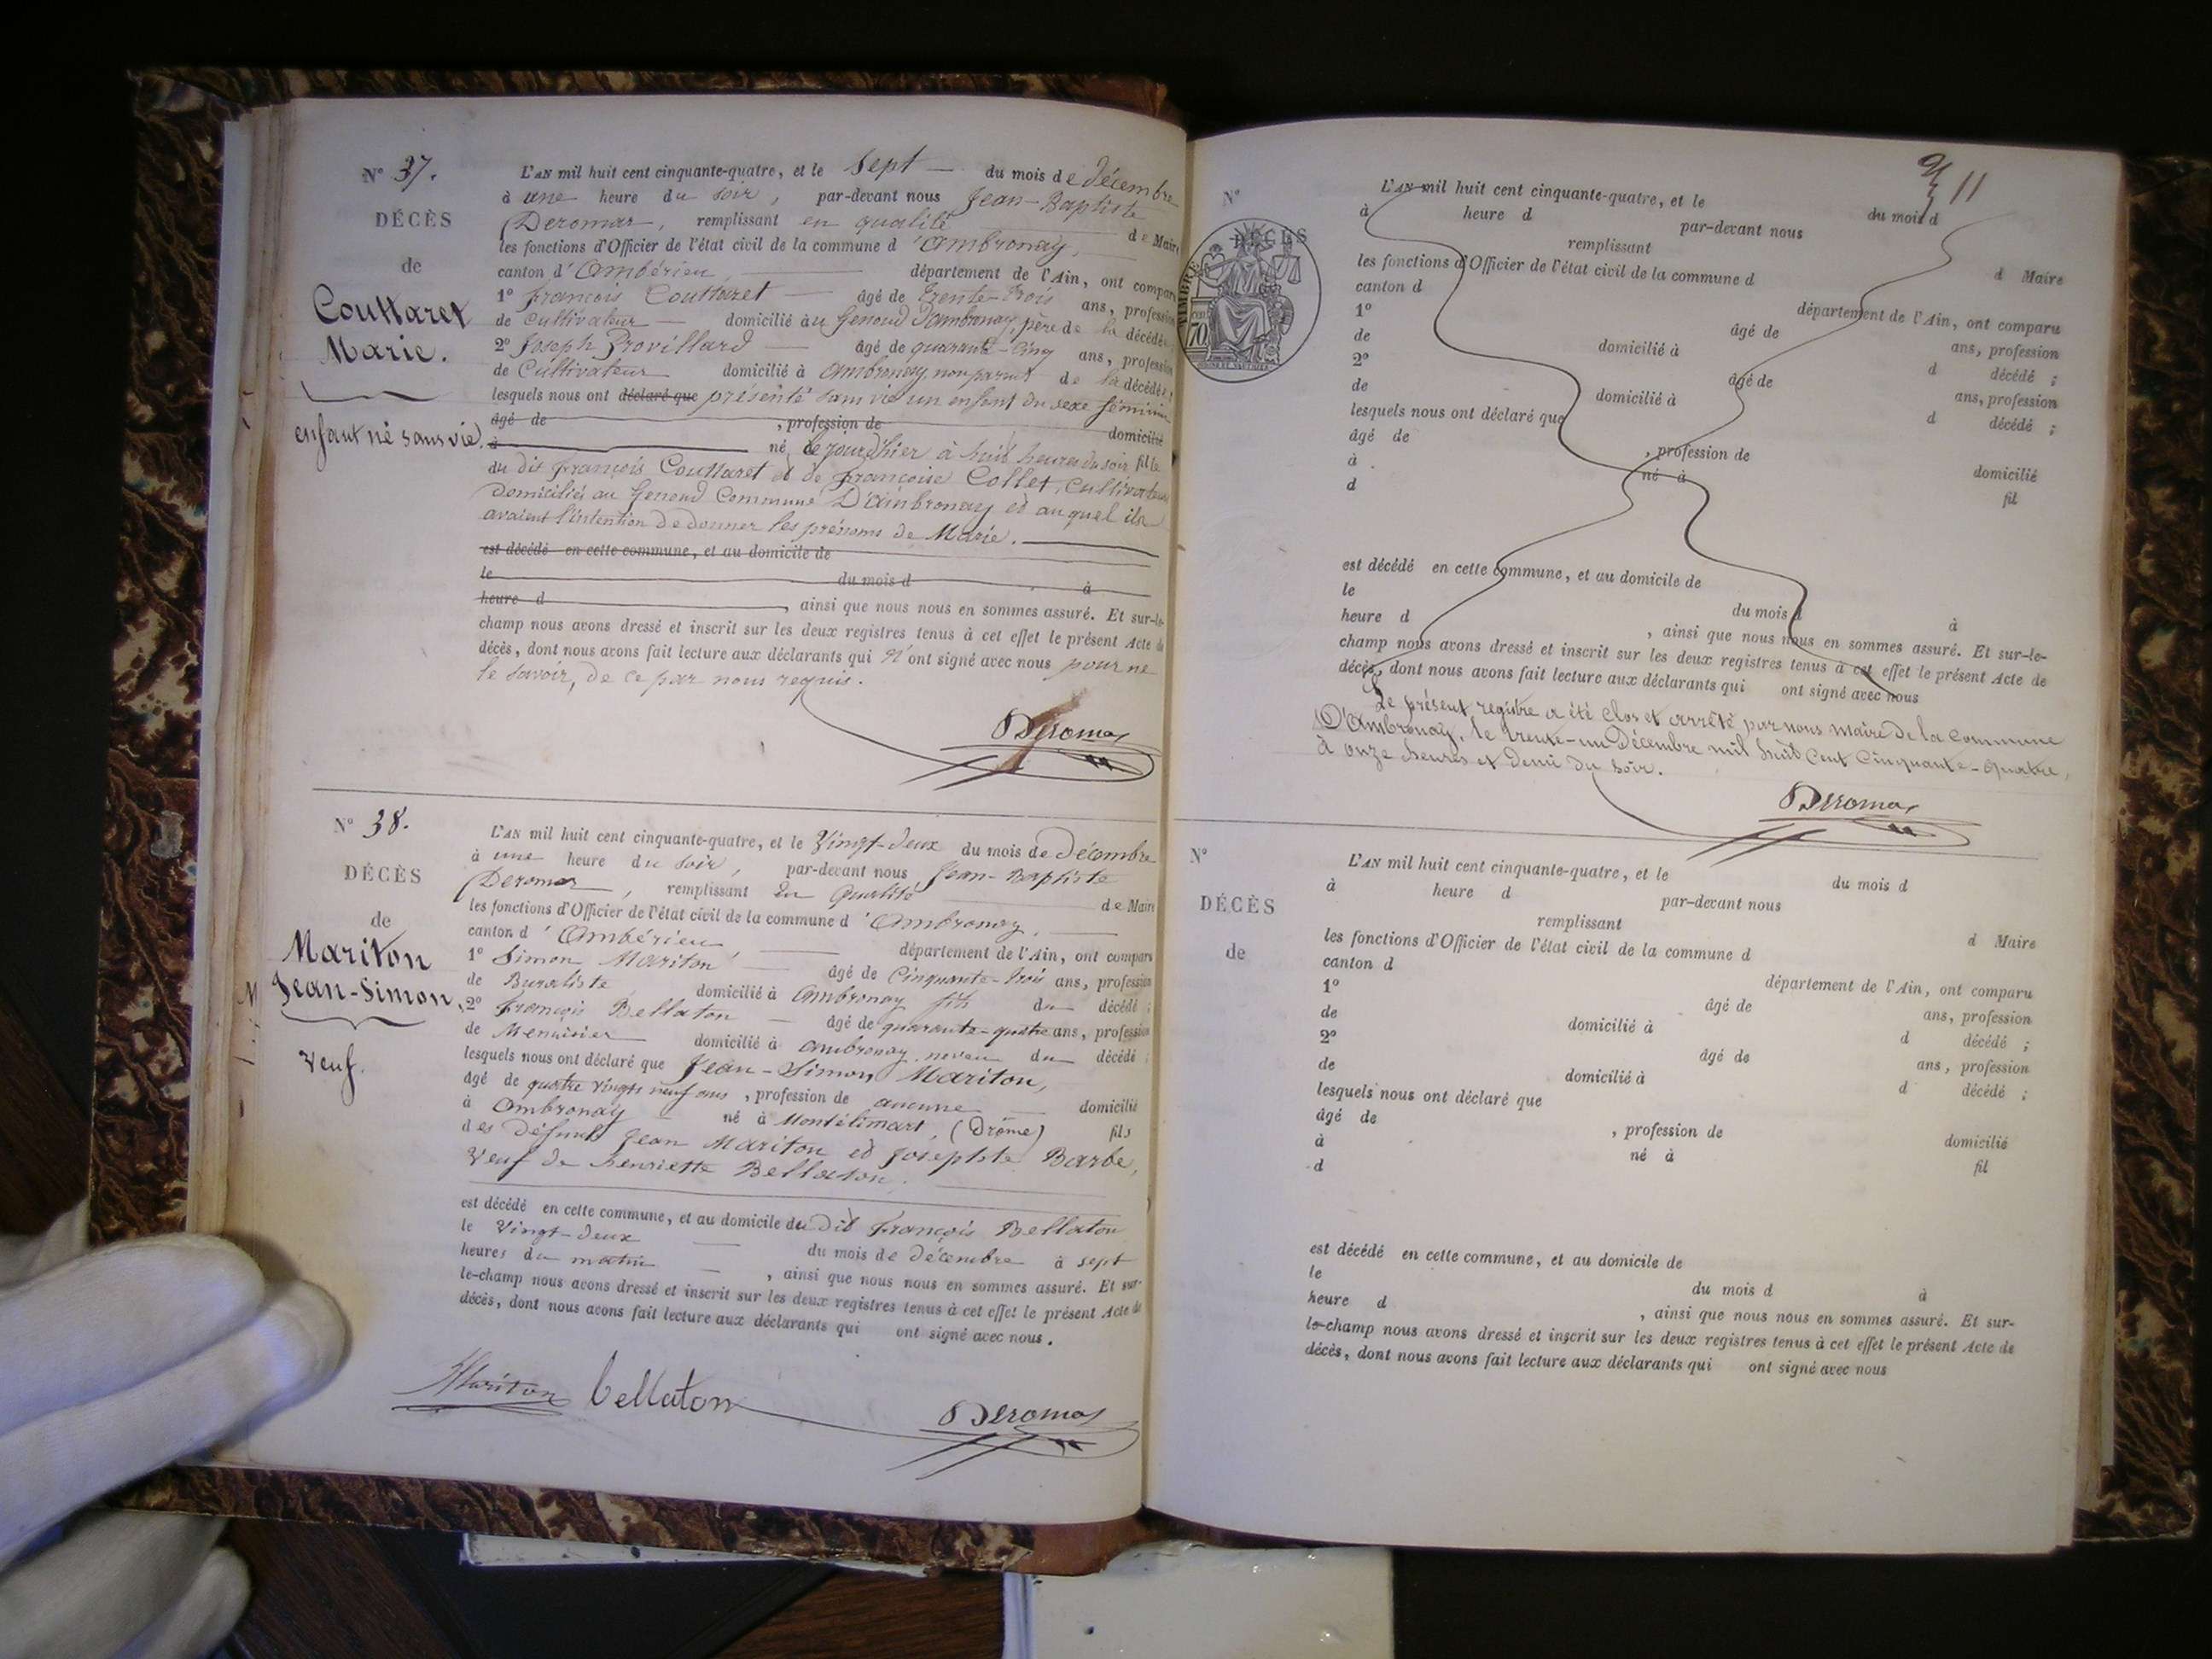 N° 37.
DÉCÈS
de
Couttaret
Marie.
enfant né sans vie.
L'AN mil huit cent cinquante-quatre, et le Sept du mois de décembre
à une heure du soir, par-devant nous Jean-Baptiste
Deromas, remplissant en qualité de Maire
les fonctions d'Officier de l'état civil de la commune d'Ambronay,
canton d'Ambérieu, département de l'Ain, ont comparu
1° François Couttaret âgé de trente-trois ans, profession
de Cultivateur domicilié au Genoud d'ambronay, père de la décédée
2° Joseph Provillard âgé de quarante-cinq ans, profession
de Cultivateur domicilié à Ambronay, non parent de la décédée;
lesquels nous ont déclaré que présenté sans vie un enfant du sexe féminin
âgé de , profession de domicilié
à né le jour d'hier à huit heures du soir fille
du dit François Couttaret et de Françoise Collet, Cultivateurs
Domiciliés au Genoud Commune D'ambronay et auquel ils
avaient l'intention de donner les prénoms de Marie.
est décédé en cette commune, et au domicile de
le du mois d à
heure d , ainsi que nous nous en sommes assuré. Et sur-le-
champ nous avons dressé et inscrit sur les deux registres tenus à cet effet le présent Acte de
décès, dont nous avons fait lecture aux déclarants qui n'ont signé avec nous pour ne
le savoir, de ce par nous requis.
Deromas
N° 38.
DÉCÈS
de
Mariton
Jean-Simon,
Veuf.
L'AN mil huit cent cinquante-quatre, et le Vingt-deux du mois de Décembre
à une heure du soir, par-devant nous Jean-Baptiste
Deromas, remplissant En Qualité de Maire
les fonctions d'Officier de l'état civil de la commune d'Ambronay,
canton d'Ambérieu département de l'Ain, ont comparu
1° Simon Mariton âgé de Cinquante-trois ans, profession
de Buraliste domicilié à Ambronay fils du décédé;
2° François Bellaton âgé de quarante-quatre ans, profession
de Menuisier domicilié à ambronay, neveu du décédé;
lesquels nous ont déclaré que Jean-Simon Mariton,
âgé de quatre vingts neuf ans, profession de aucune domicilié
à Ambronay né à Montélimart, (Drôme) fils
des défunts Jean Mariton et Josephte Barbe,
Veuf de henriette Bellaton.
est décédé en cette commune, et au domicile du Dit François Bellaton
le Vingt-deux du mois de Décembre à sept
heures du matin , ainsi que nous nous en sommes assuré. Et sur-
le-champ nous avons dressé et inscrit sur les deux registres tenus à cet effet le présent Acte de
décès, dont nous avons fait lecture aux déclarants qui ont signé avec nous.
Mariton bellaton Deromas
11
N°
DÉCÈS
TIMBRE
70
L'AN mil huit cent cinquante-quatre, et le du mois d
à heure d par-devant nous
remplissant d Maire
les fonctions d'Officier de l'état civil de la commune d
canton d département de l'Ain, ont comparu
1° âgé de ans, profession
de domicilié à d décédé ;
2° âgé de ans, profession
de domicilié à d décédé ;
lesquels nous ont déclaré que
âgé de , profession de domicilié
à né à fil
d
est décédé en cette commune, et au domicile de
le du mois d à
heure d , ainsi que nous nous en sommes assuré. Et sur-le-
champ nous avons dressé et inscrit sur les deux registres tenus à cet effet le présent Acte de
décès, dont nous avons fait lecture aux déclarants qui ont signé avec nous
Le présent registre a été clos et arrêté par nous maire de la Commune
D'Ambronay, le trente-un Décembre mil huit Cent Cinquante-Quatre,
à onze heures et demi du soir.
Deromas
N°
DÉCÈS
de
L'AN mil huit cent cinquante-quatre, et le du mois d
à heure d par-devant nous
remplissant d Maire
les fonctions d'Officier de l'état civil de la commune d
canton d département de l'Ain, ont comparu
1° âgé de ans, profession
de domicilié à d décédé ;
2° âgé de ans, profession
de domicilié à d décédé ;
lesquels nous ont déclaré que
âgé de , profession de domicilié
à né à fil
d
est décédé en cette commune, et au domicile de
le du mois d à
heure d , ainsi que nous nous en sommes assuré. Et sur-
le-champ nous avons dressé et inscrit sur les deux registres tenus à cet effet le présent Acte de
décès, dont nous avons fait lecture aux déclarants qui ont signé avec nous